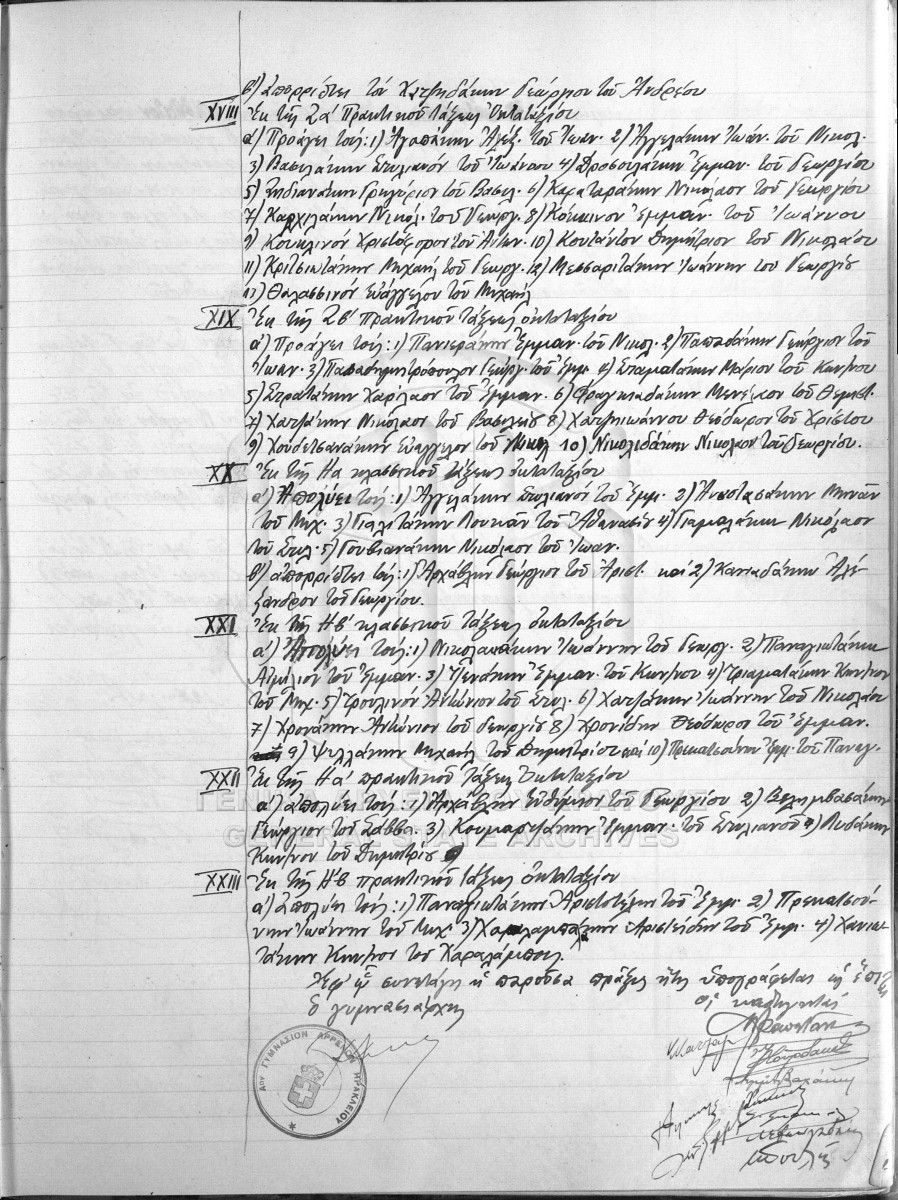 β') Ἀπορρίπτει τὸν Χατζηδάκην Γεώργιον τοῦ Ἀνδρέου
XVIII Ἐκ τῆς Ζα' Πρακτικοῦ τάξεως Ὀκταταξίου
α') Προάγει τούς: 1) Ἀγαπάκην Ἀλέξ. τοῦ Ἰωάν. 2) Ἀγγελάκην Ἰωάν. τοῦ Νικολ.
3) Βασιλάκην Στυλιανόν τοῦ Ἰωάννου 4) Δροσουλάκην Ἐμμαν. τοῦ Γεωργίου
5) Ζηδιανάκην Γρηγόριον τοῦ Βασιλ. 6) Καραταράκην Νικόλαον τοῦ Γεωργίου
7) Καρχιλάκην Νικολ. τοῦ Γεωργ. 8) Κόκκινον Ἐμμαν. τοῦ Ἰωάννου
9) Κουκλινόν Χριστόφορον τοῦ Ἀντων. 10) Κουτάντον Δημήτριον τοῦ Νικολάου
11) Κριτσωτάκην Μιχαήλ τοῦ Γεωργ. 12) Μεσσαριτάκην Ἰωάννην του Γεωργίου
13) Θαλασσινόν Εὐάγγελον τοῦ Μιχαήλ
XIX Ἐκ τῆς Ζβ' πρακτικοῦ τάξεως ὀκταταξίου
α') Προάγει τούς: 1) Πανιεράκην Ἐμμαν. τοῦ Νικολ. 2) Παπαδάκην Γεώργιον τοῦ
Ἰωαν. 3) Παπαδημητρόπουλον Γεώργ. τοῦ Ἐμμ. 4) Σταματάκην Μάριον τοῦ Κων/νου
5) Στρατάκην Χαρίλαον τοῦ Ἐμμαν. 6) Φραγκιαδάκην Μενέλαον τοῦ Θεμιστ.
7) Χατζάκην Νικόλαον τοῦ Βασιλείου 8) Χατζηιωάννου Θεόδωρον τοῦ Χρίστου
9) Χουδετσανάκην Εὐάγγελον τοῦ Μιχαήλ 10) Νικολιδάκην Νικόλαον τοῦ Γεωργίου.
XX Ἐκ τῆς Ηα κλασσικοῦ τάξεως ὀκταταξίου
α') Ἀπολύει τούς: 1) Ἀγγελάκην Στυλιανόν τοῦ Ἐμμ. 2) Ἀναστασάκην Μηνᾶν
τοῦ Μιχ. 3) Γιαλιτάκην Λουκᾶν τοῦ Ἀθανασίου 4) Γιαμαλάκην Νικόλαον
τοῦ Στυλ. 5) Γουβιανάκην Νικόλαον τοῦ Ἰωαν.
β') ἀπορρίπτει τούς: 1) Ἀρχαύλην Γεώργιον τοῦ Ἀριστ. καὶ 2) Κανιαδάκην Ἀλέ-
ξανδρον τοῦ Γεωργίου.
XXI Ἐκ τῆς Ηβ' κλασσικοῦ τάξεως ὀκταταξίου
α') Ἀπολύει τούς: 1) Νικολακάκην Ἰωάννην τοῦ Γεωργ. 2) Παναγιωτάκην
Αἰμίλιον τοῦ Ἐμμαν. 3) Ξενάκην Ἐμμαν. τοῦ Κων/νου 4) Τριαματάκην Κων/νον
τοῦ Μιχ. 5) Τρουλινόν Ἀντώνιον τοῦ Στυλ. 6) Χατζάκην Ἰωάννην τοῦ Νικολάου
7) Χρονάκην Ἀντώνιον τοῦ Γεωργίου 8) Χρονίδην Θεόδωρον τοῦ Ἐμμαν.
9) Ψυλλάκην Μιχαήλ τοῦ Δημητρίου καὶ 10) Πρεκατσούνην Ἐμμ. τοῦ Παναγ.
XXII Ἐκ τῆς Ηα' πρακτικοῦ τάξεως Ὀκταταξίου
α') ἀπολύει τούς: 1) Ἀρχαύλην Εὐθύμιον τοῦ Γεωργίου 2) Βεληβασάκην
Γεώργιον τοῦ Σάββα. 3) Κουμαρτζάκην Ἐμμαν. τοῦ Στυλιανοῦ 4) Λυδάκην
Κων/νον τοῦ Δημητρίου
XXIII Ἐκ τῆς Η'β πρακτικοῦ τάξεως ὀκταταξίου
α') ἀπολύει τούς: 1) Παναγιωτάκην Ἀριστοτέλην τοῦ Ἐμμ. 2) Πρεκατσού-
νην Ἰωάννην τοῦ Μιχ. 3) Χαραλαμπάκην Ἀριστείδην τοῦ Ἐμμ. 4) Χανιω-
τάκην Κων/νον του Χαραλάμπους.
Ἐφ' ᾧ συνετάγη ἡ παροῦσα πρᾶξις ἥτις ὑπογράφεται ὡς ἕπεται
Ὁ γυμνασιάρχης Οἱ καθηγηταί
Αον ΓΥΜΝΑΣΙΟΝ ΑΡΡΕΝΩΝ ΗΡΑΚΛΕΙΟΥ
ΓΕΝΙΚΑ ΑΡΧΕΙΑ ΤΟΥ ΚΡΑΤΟΥΣ
GENERAL STATE ARCHIVES